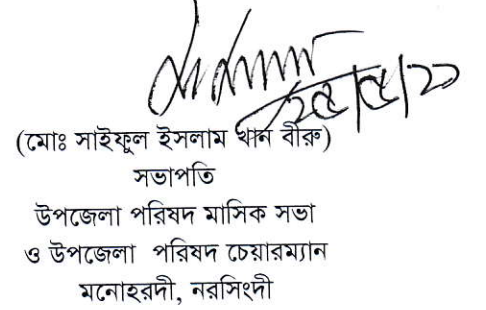 (মোঃ সাইফুল ইসলাম খান বীরু)
সভাপতি
উপজেলা পরিষদ মাসিক সভা
ও উপজেলা পরিষদ চেয়ারম্যান
মনোহরদী, নরসিংদী